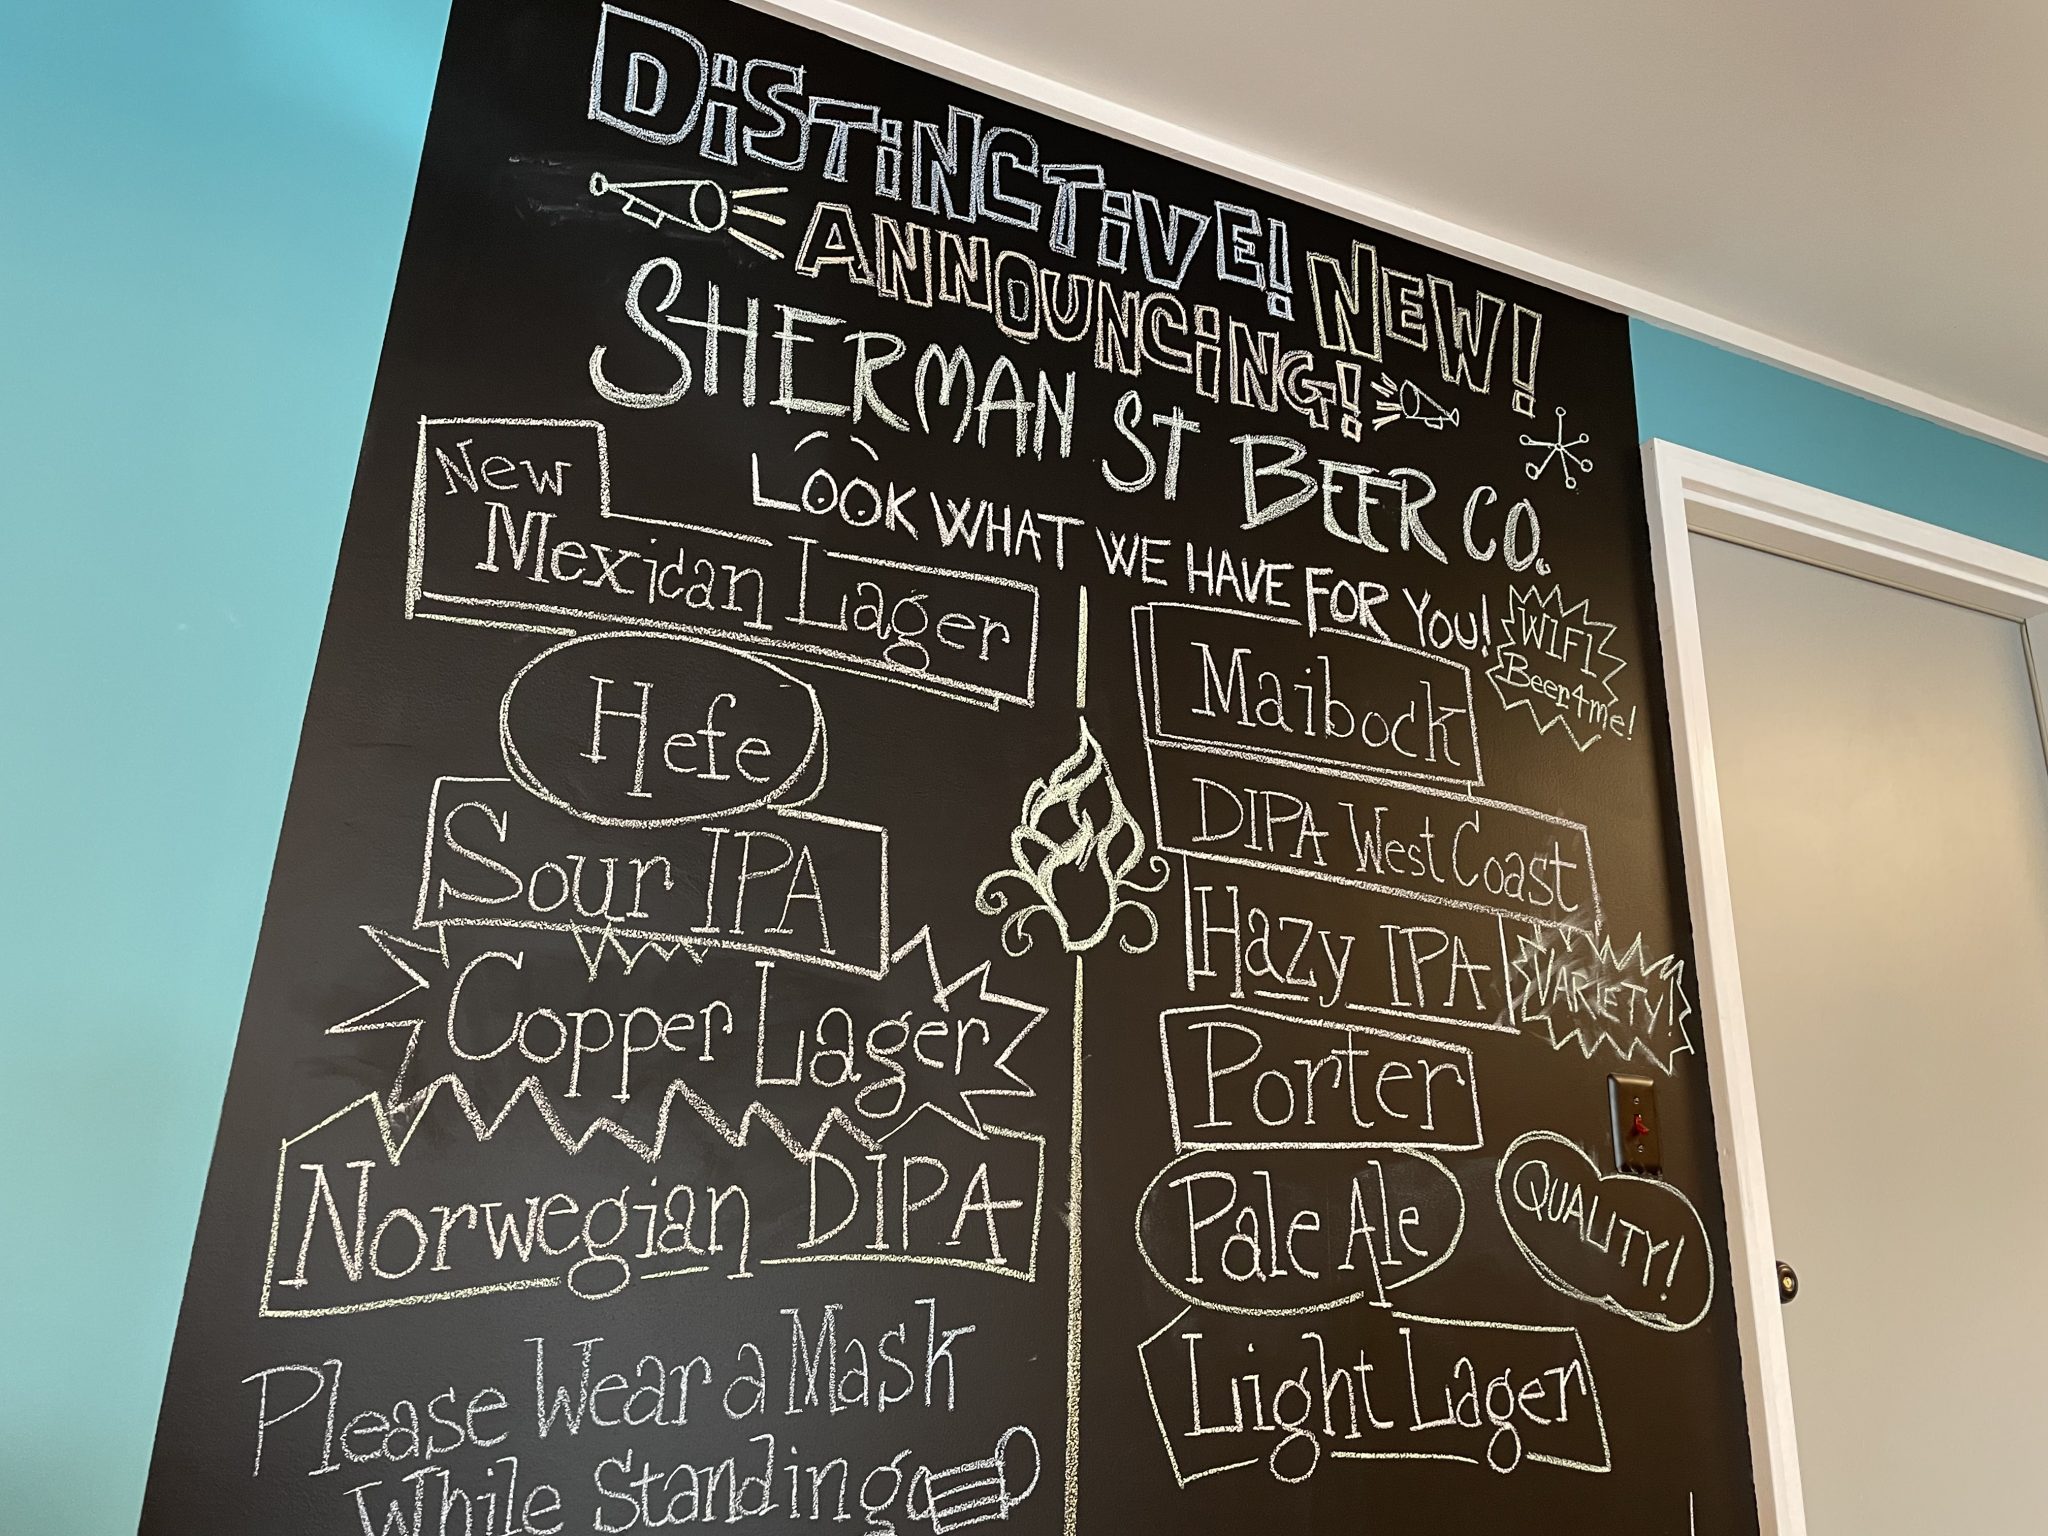 DISTINCTIVE! NEW!
ANNOUNCING!
SHERMAN ST BEER CO.
LOOK WHAT WE HAVE FOR YOU!
New
Mexican Lager
Hefe
Sour IPA
Copper Lager
Norwegian DIPA
Please Wear a Mask
While Standing
WIFI
Beer4me!
Maibock
DIPA West Coast
Hazy IPA
VARIETY!
Porter
Pale Ale
QUALITY!
Light Lager